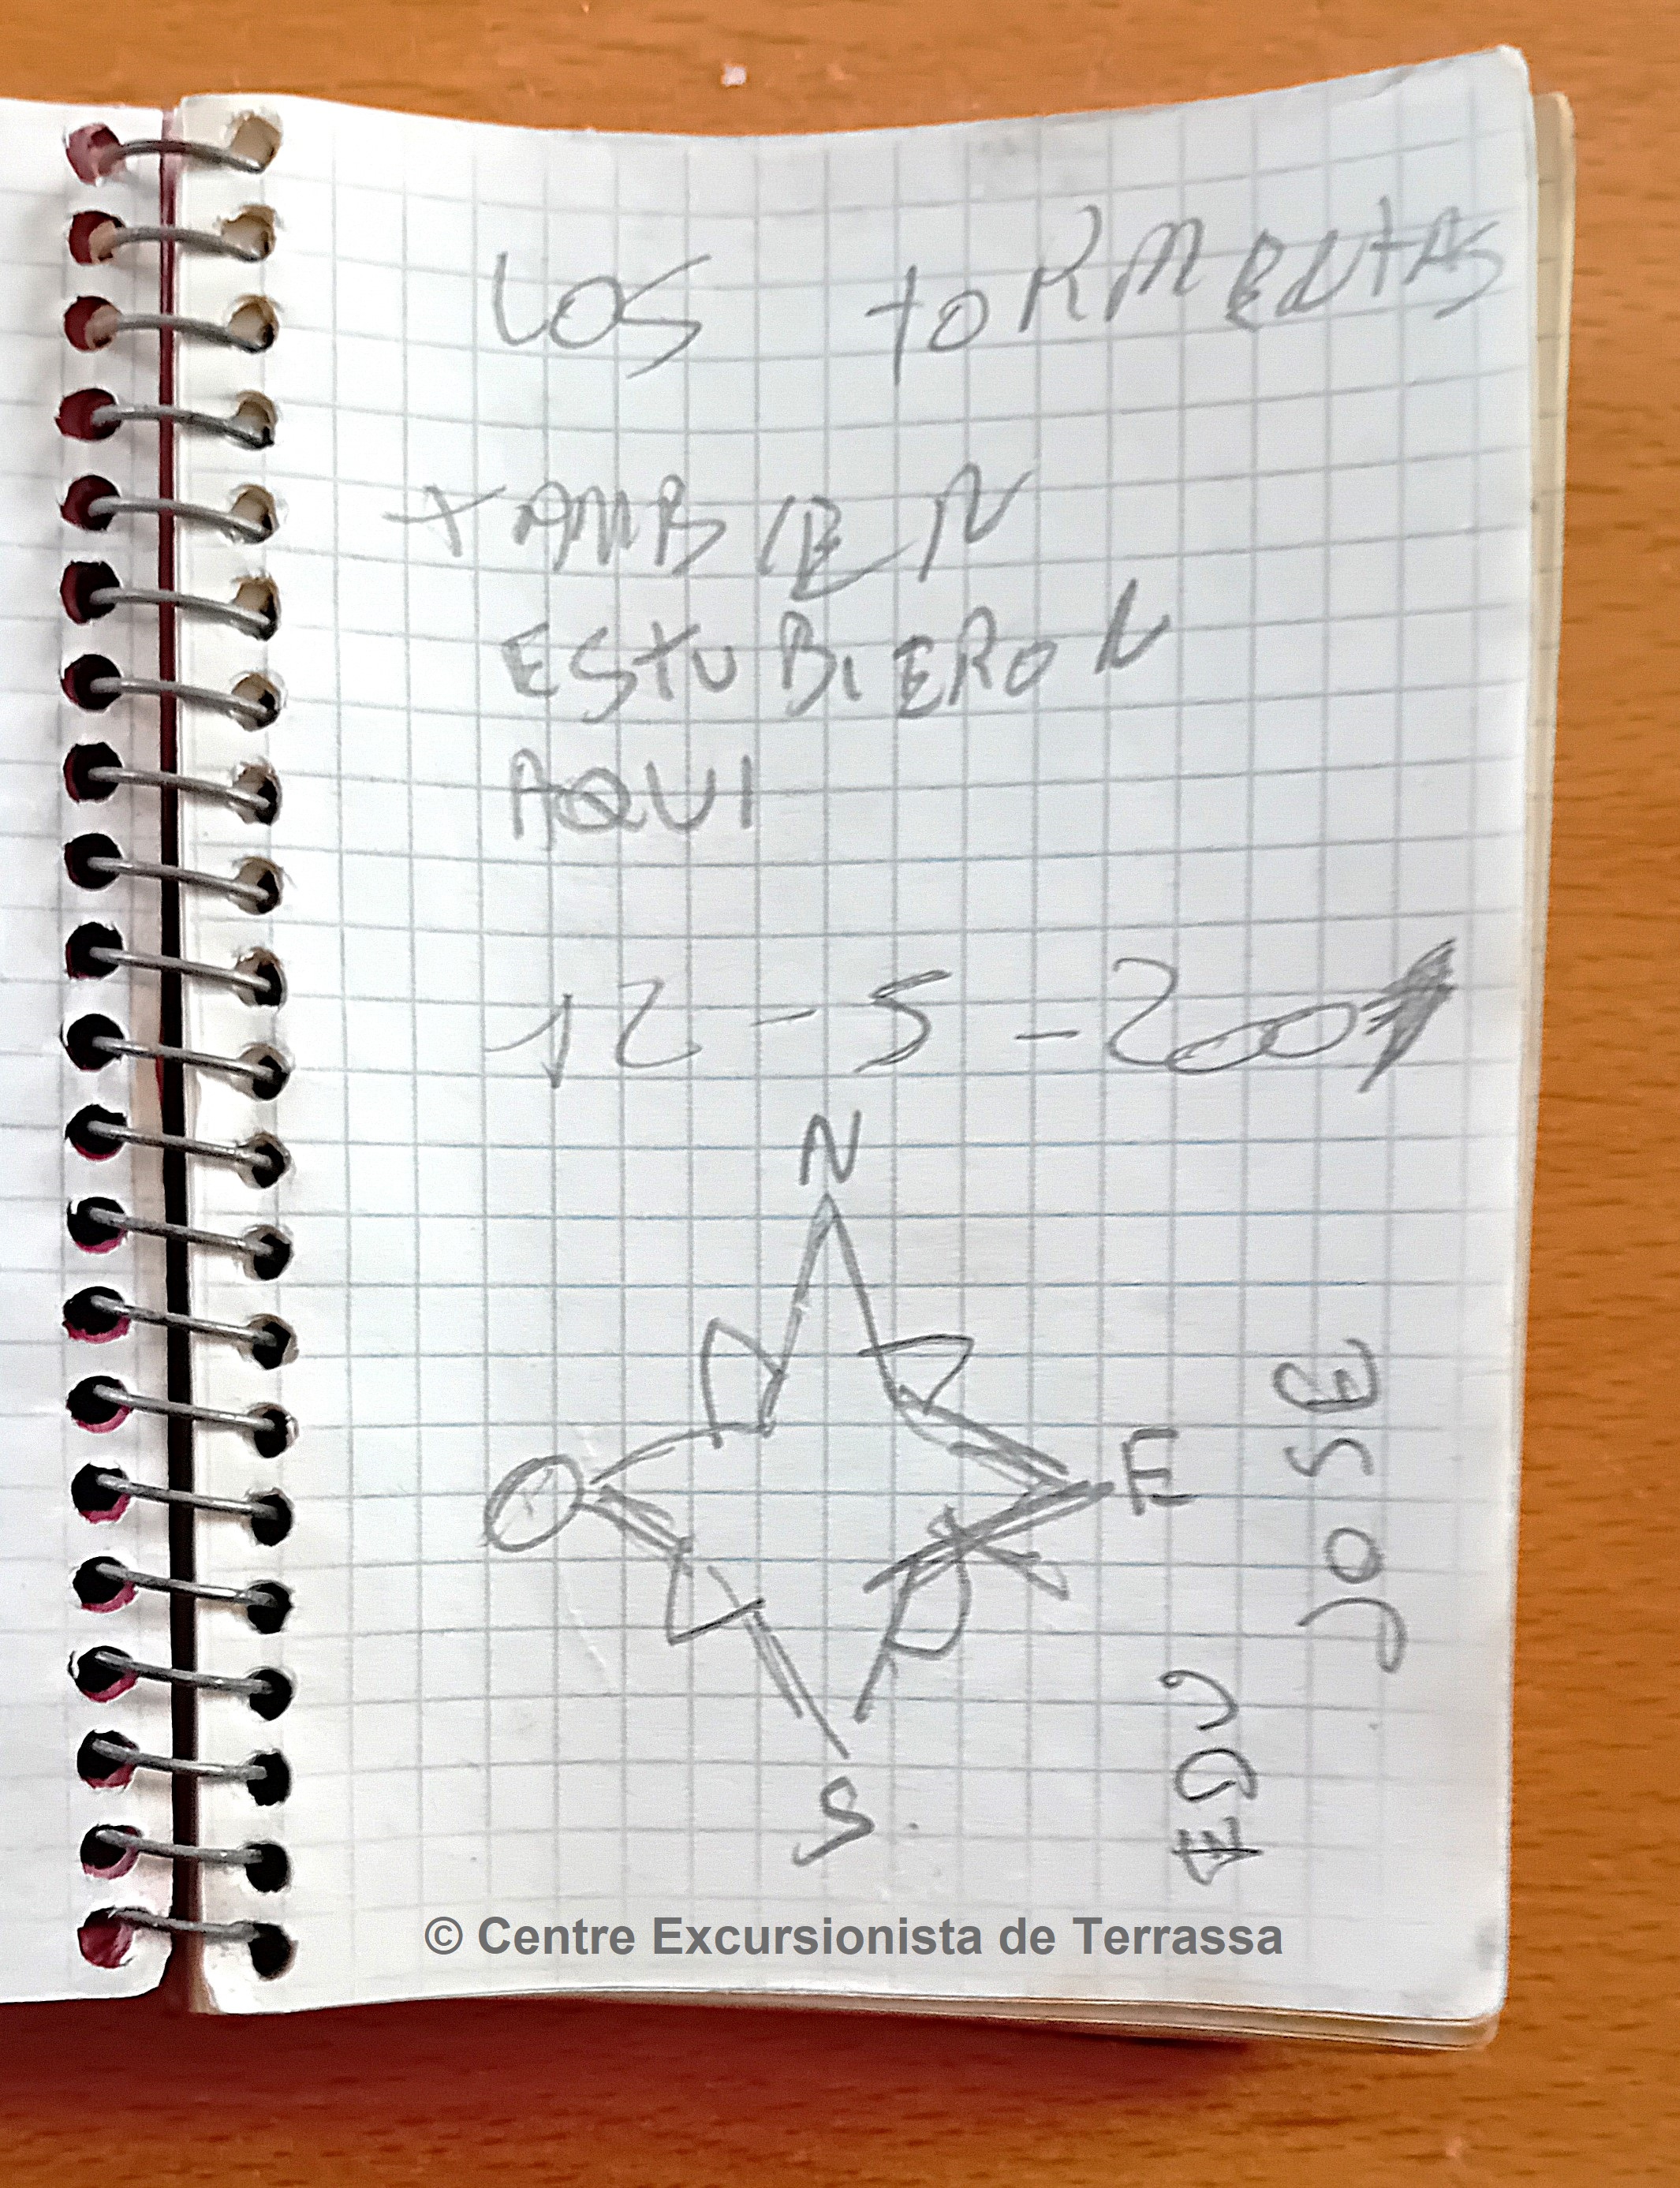 LOS tORMENtAS
tAMBIEN
EStUBIERON
AQUI
12-5-2001
N
O
E
S
EDU
JOSE
© Centre Excursionista de Terrassa